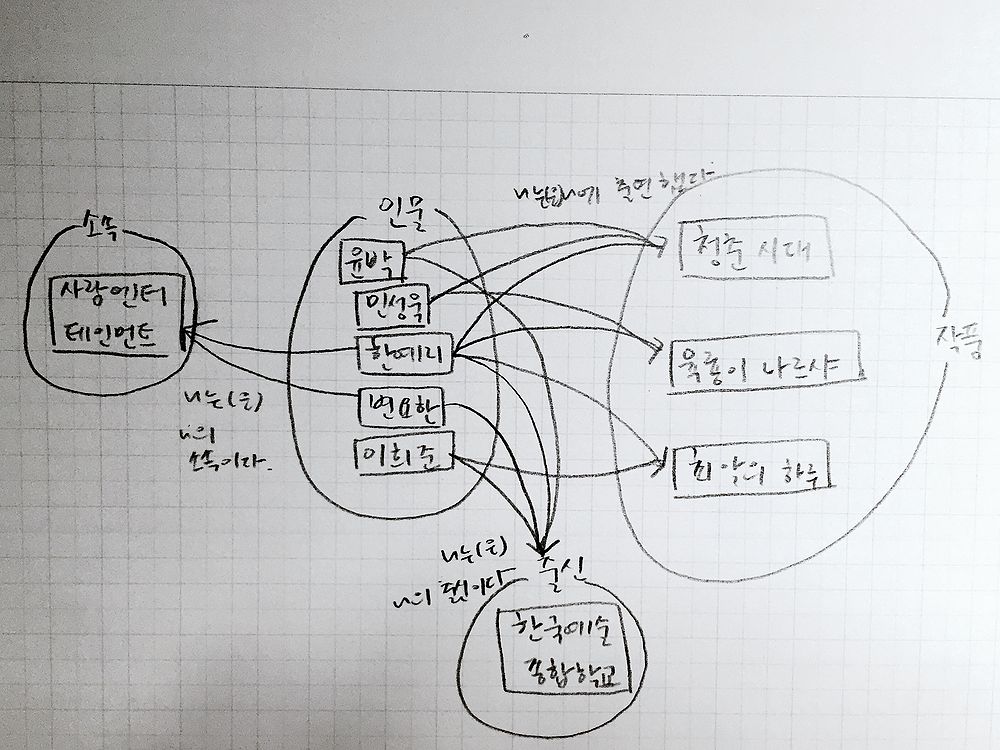 소속
사랑엔터
테인먼트
인물
윤박
민성욱
한예리
변요한
이희준
~는(은) ~에 출연했다
청춘 시대
육룡이 나르샤
최악의 하루
작품
~는(은)
~의
소속이다.
~는(은)
~의 출신이다
출신
한국예술
종합학교